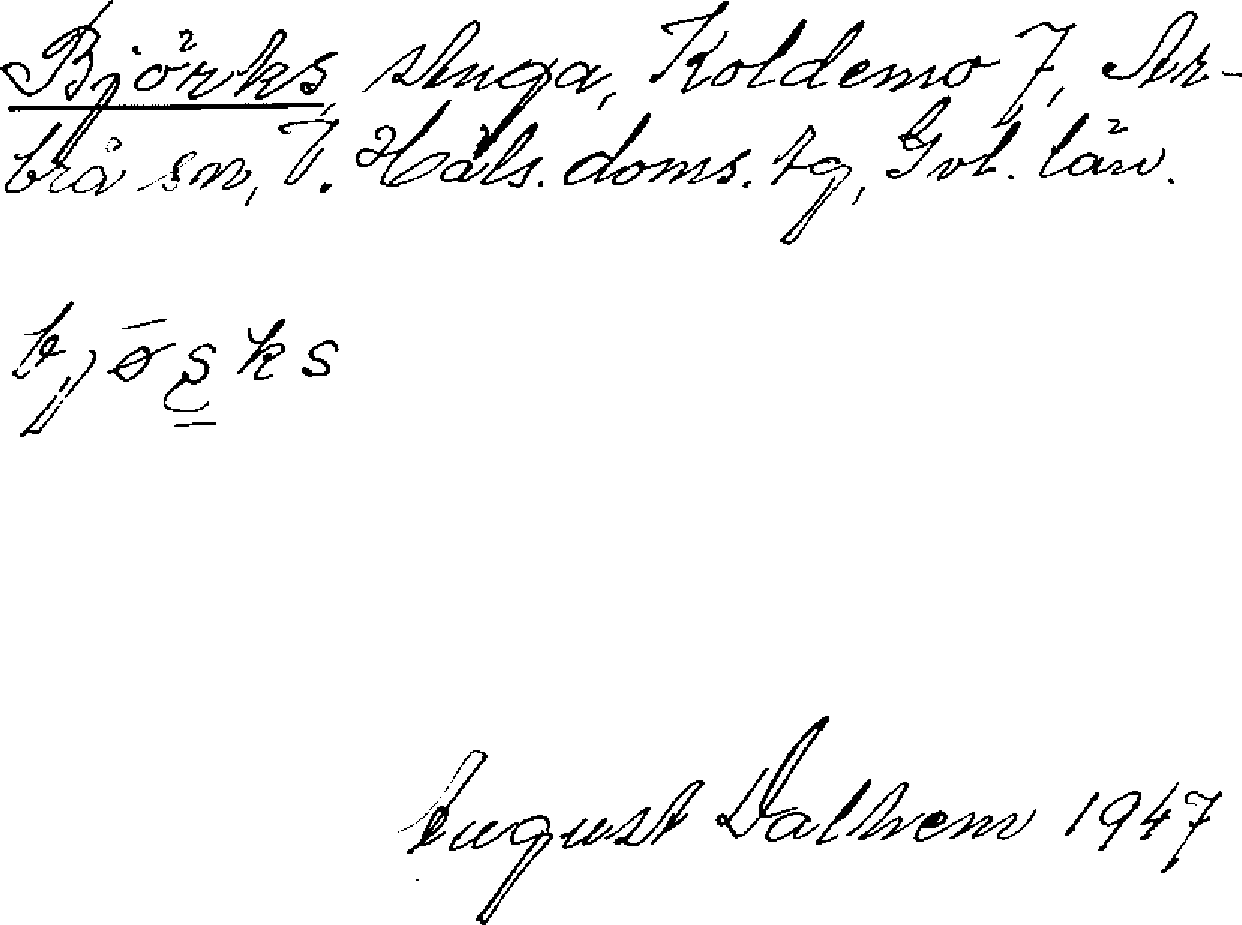 Björks stuga, Koldemo 7, Ar-
brå sn, V. Häls. doms. tg, Gvl. län.
bjȫs̱ks
August Dalhem 1947